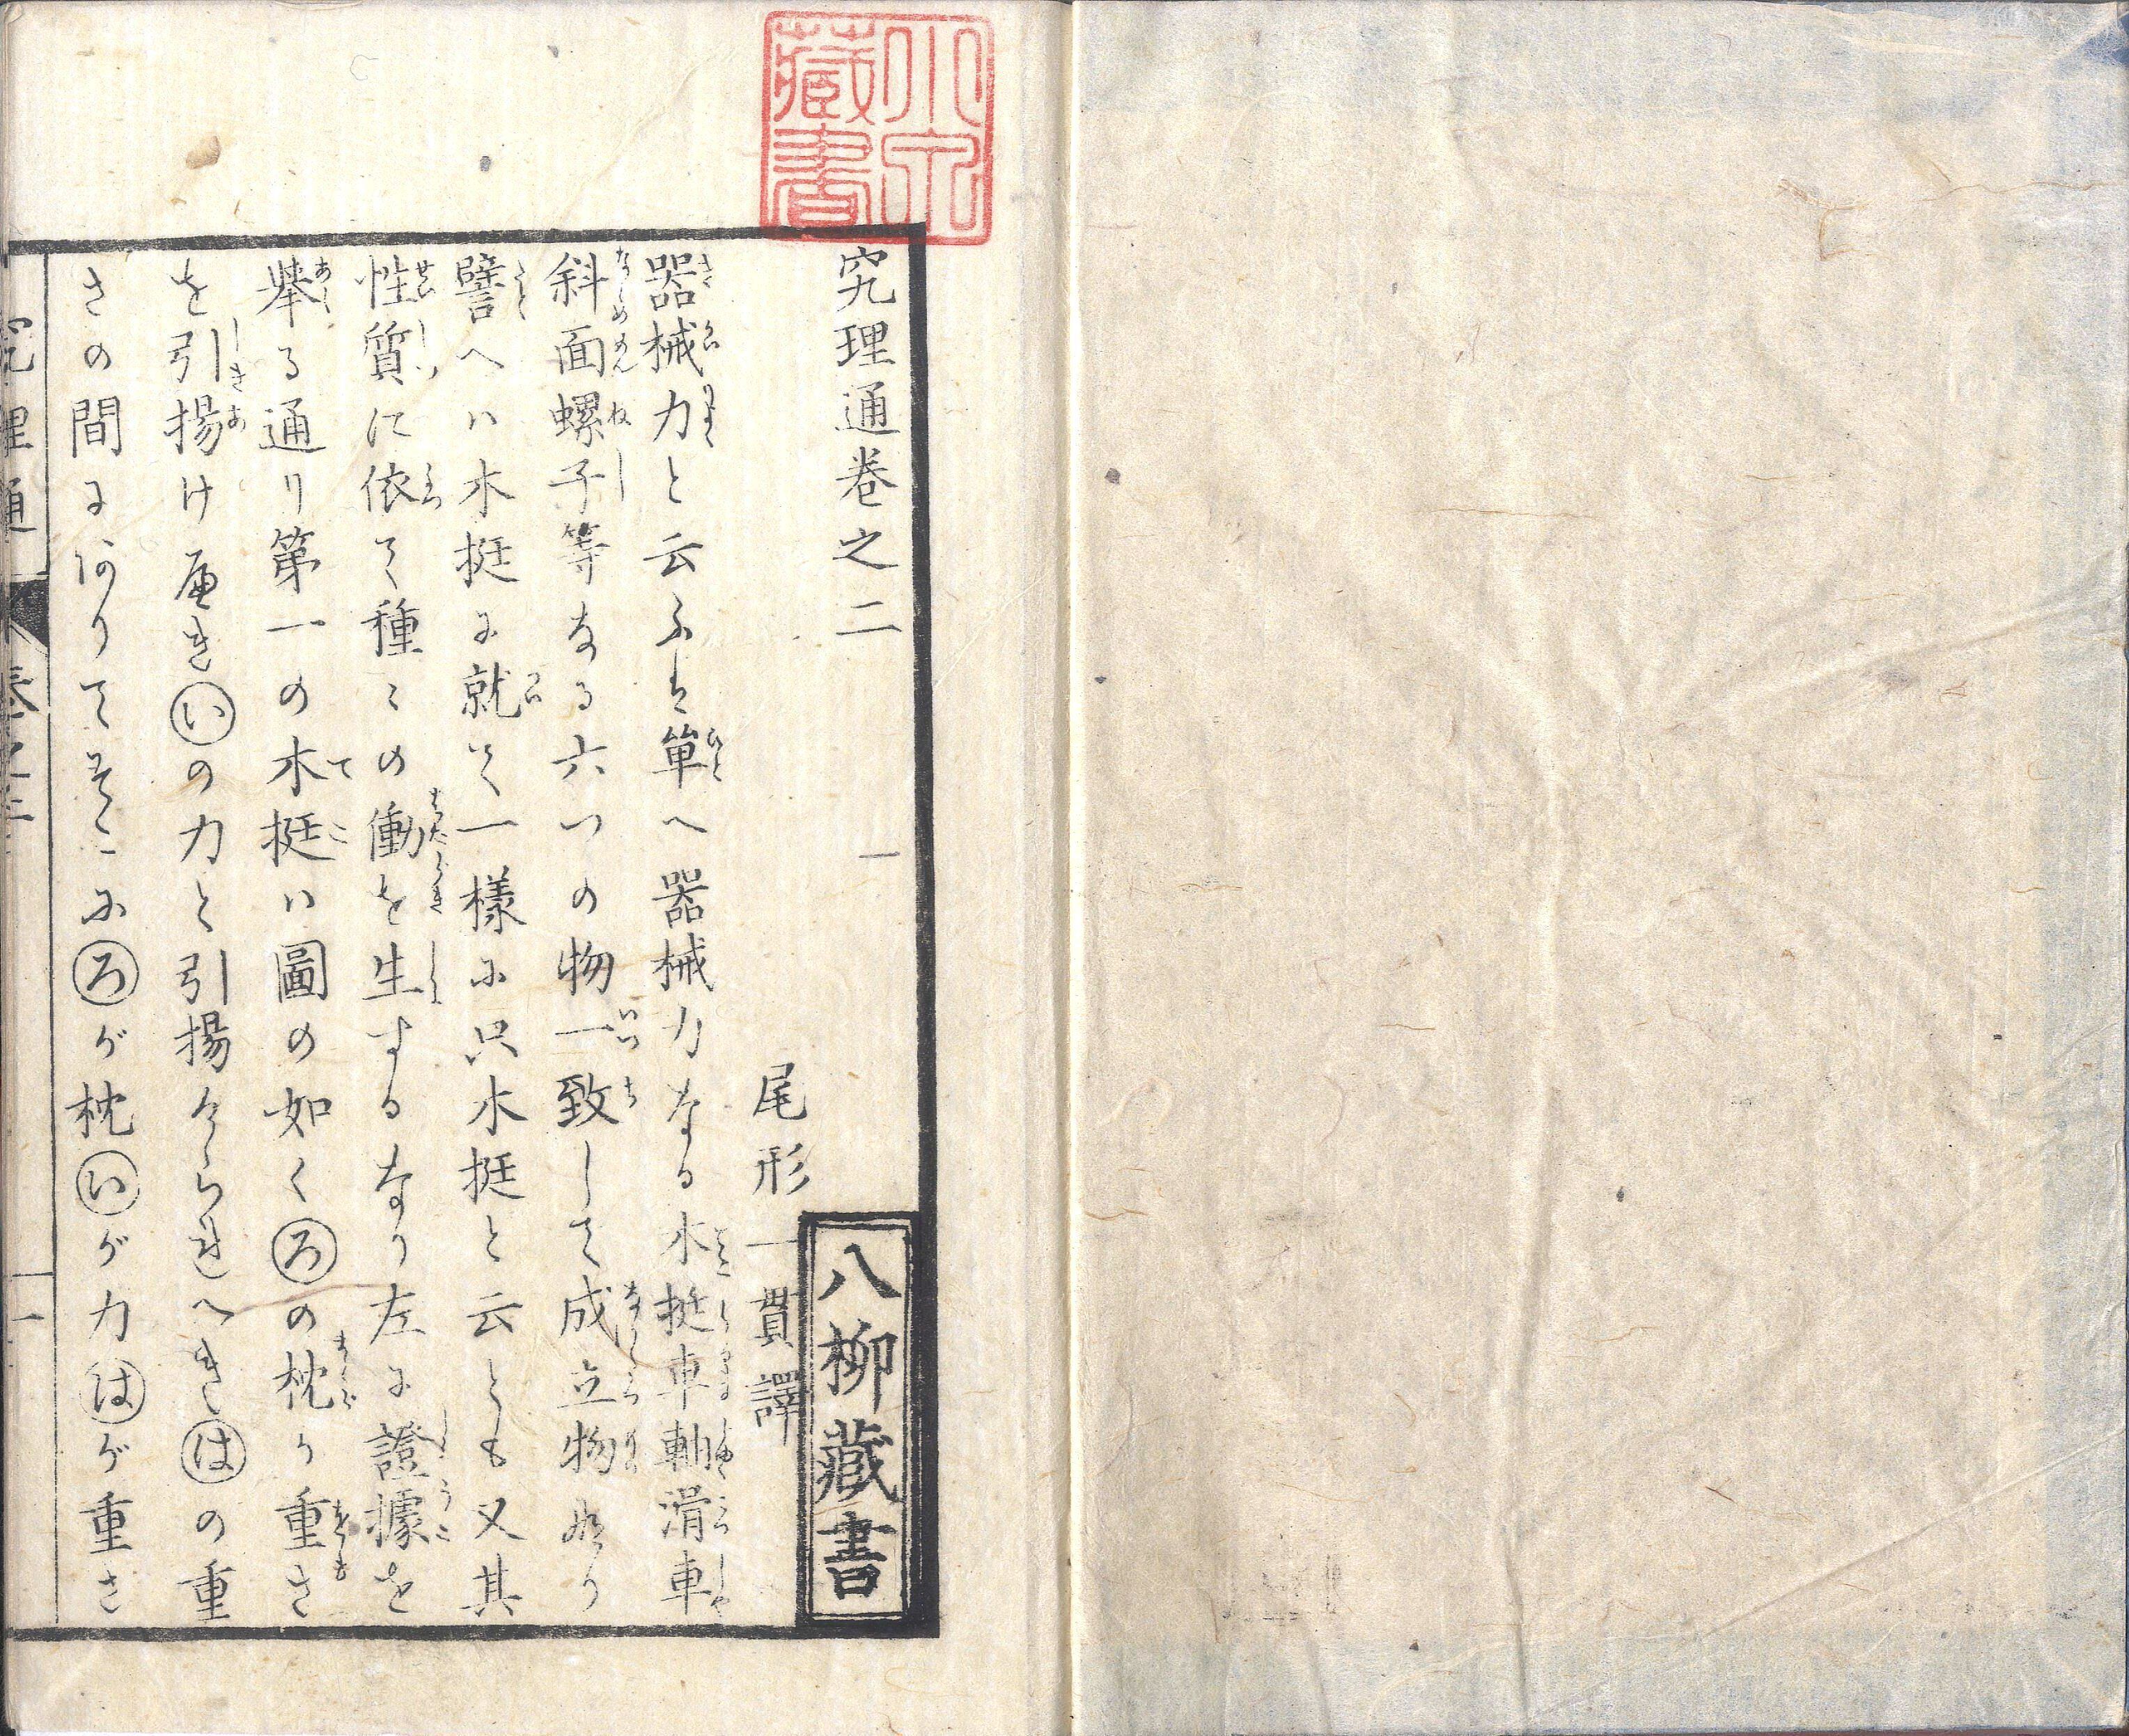 藏書
究理通卷之二
尾形一貫譯
八柳藏書
器械力と云ふは單へ器械力なる木挺車軸滑車
斜面螺子等なる六つの物一致して成立物なり
譬へハ木挺に就て一樣に只木挺と云とも又其
性質に依て種々の働を生するなり左に證據を
擧る通り第一の木挺ハ圖の如くろの枕り重さ
を引揚け屋きいの力と引揚けられへきはの重
さの間にありてそこにろが枕いが力はが重さ
究理通
卷之二
一